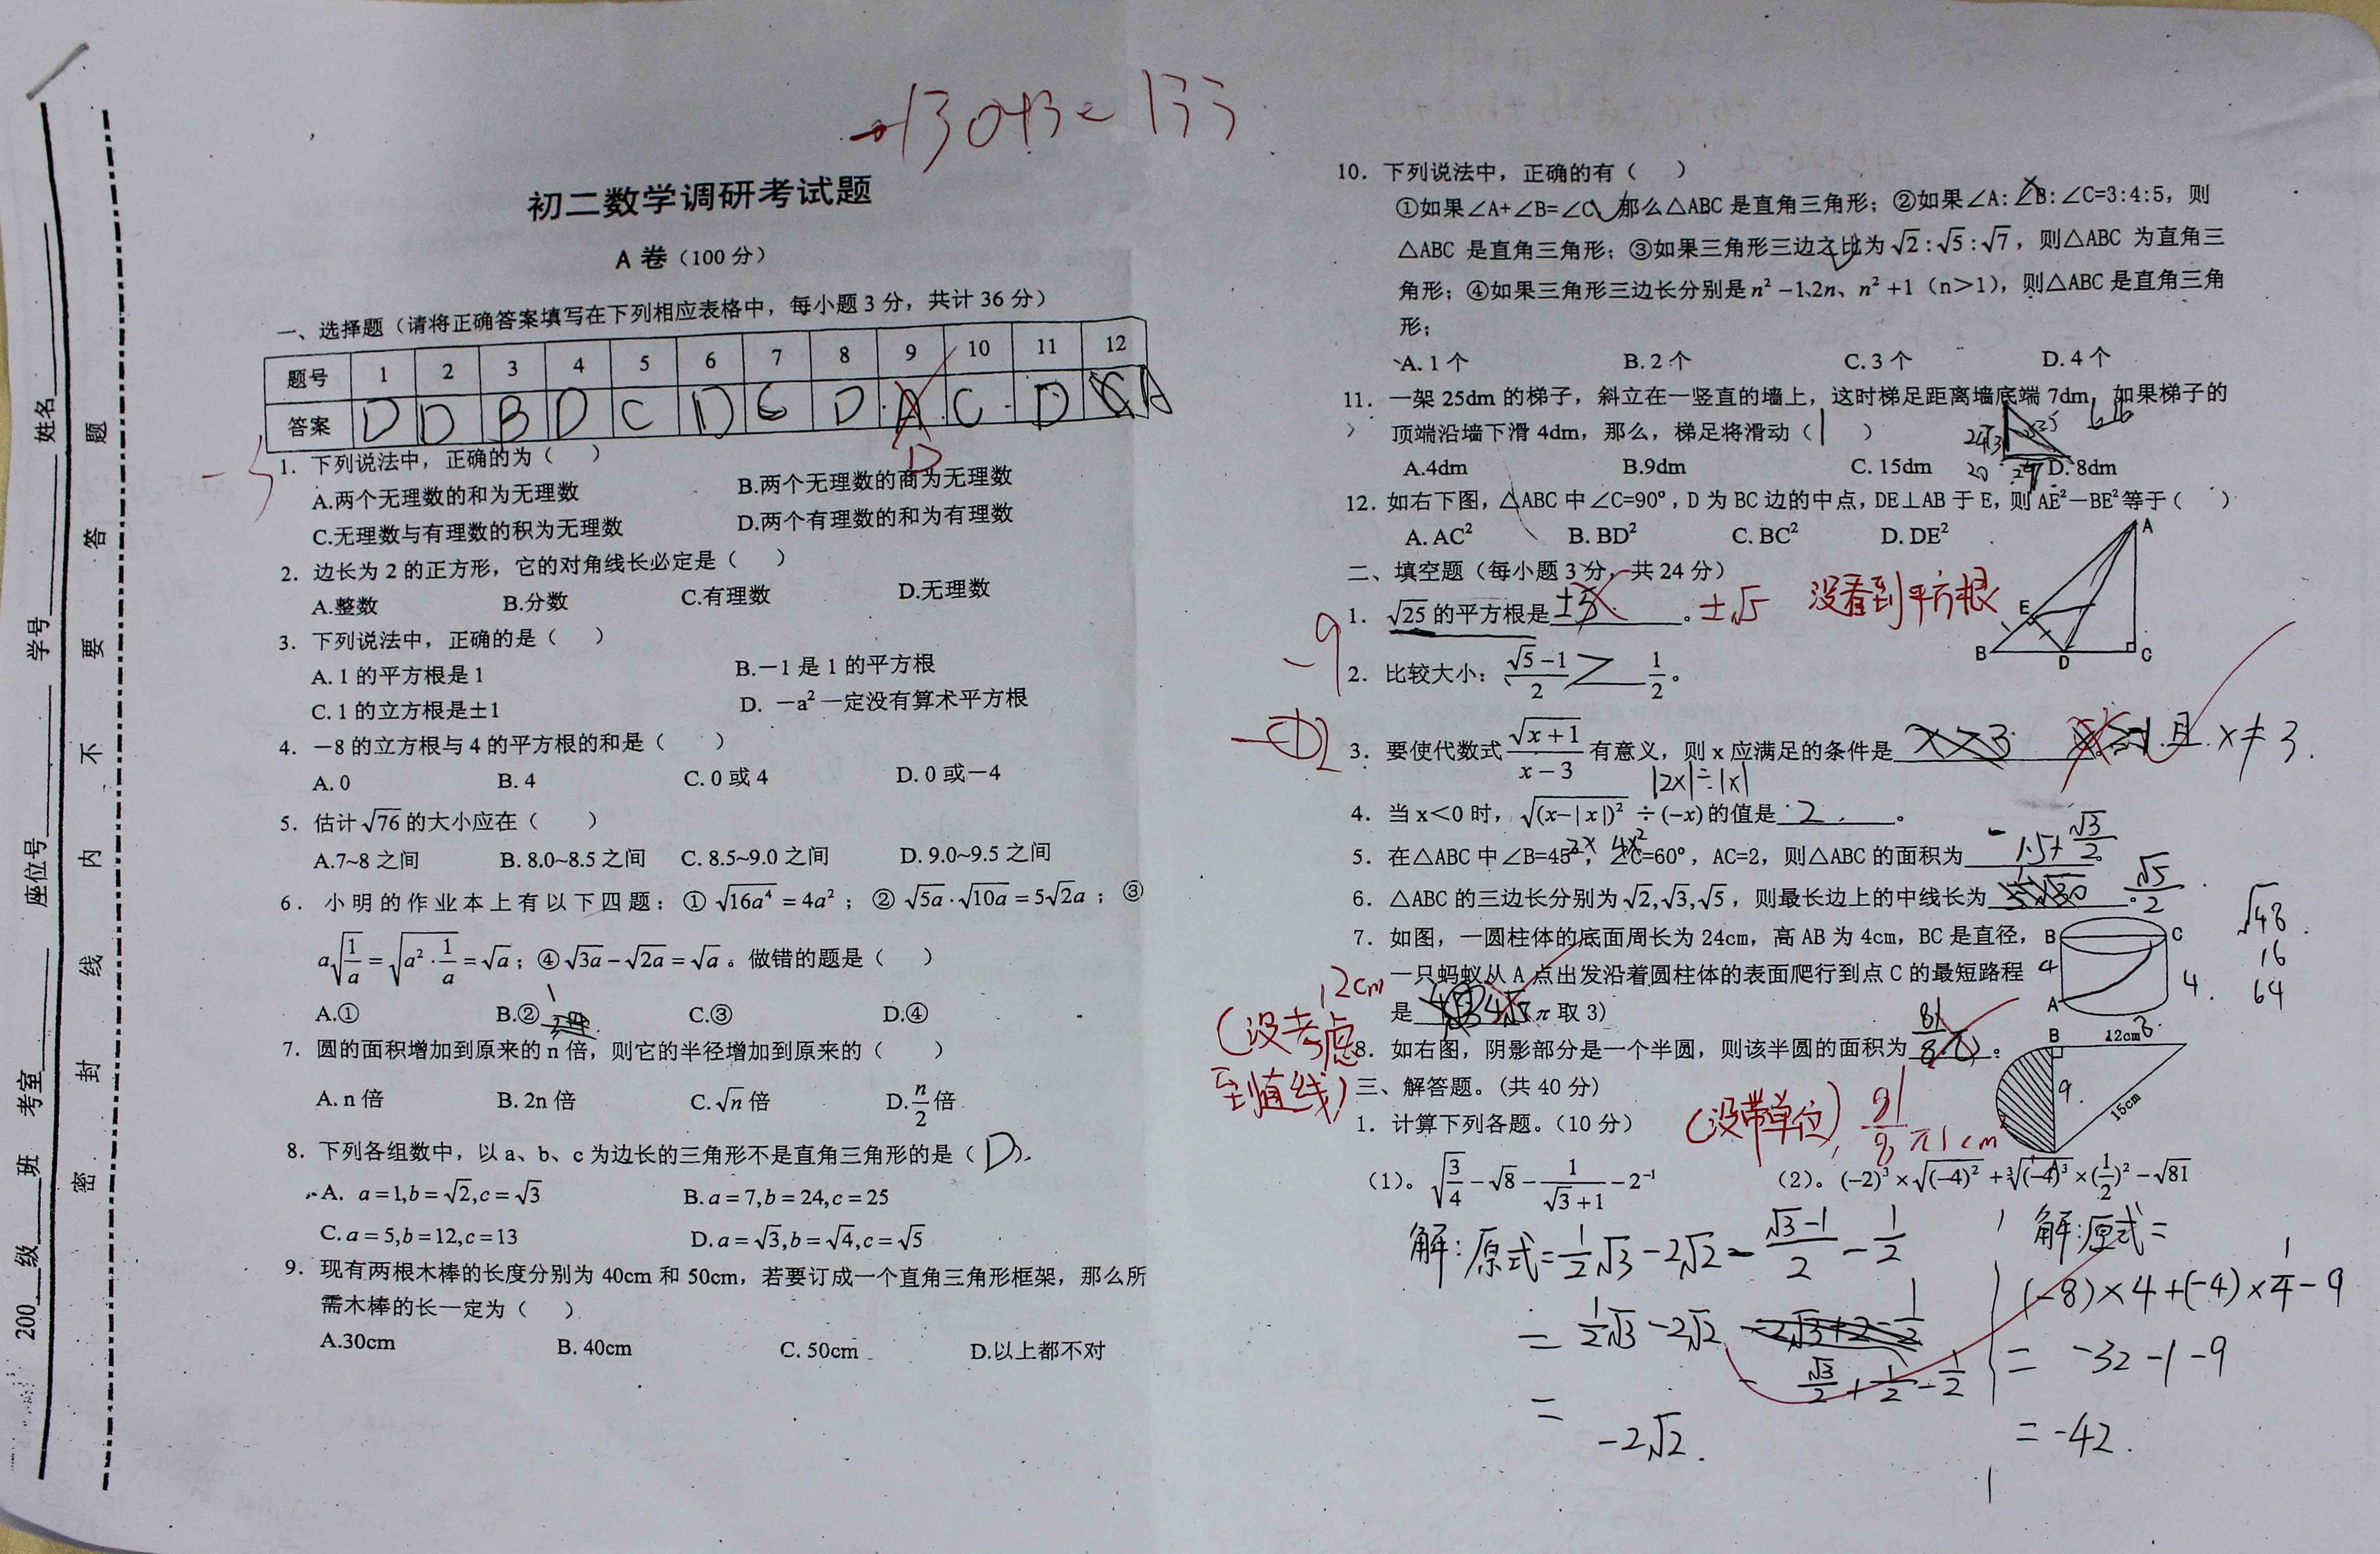 -130+3=133
初二数学调研考试题
A 卷（100 分）
一、选择题（请将正确答案填写在下列相应表格中，每小题 3 分，共计 36 分）
题号 1 2 3 4 5 6 7 8 9 10 11 12
答案 D D B D C D C D A C D A
D
-3
1. 下列说法中，正确的为（ ）
A.两个无理数的和为无理数 B.两个无理数的商为无理数
C.无理数与有理数的积为无理数 D.两个有理数的和为有理数
2. 边长为 2 的正方形，它的对角线长必定是（ ）
A.整数 B.分数 C.有理数 D.无理数
3. 下列说法中，正确的是（ ）
A. 1 的平方根是 1 B.－1 是 1 的平方根
C. 1 的立方根是±1 D. －a² 一定没有算术平方根
4. －8 的立方根与 4 的平方根的和是（ ）
A. 0 B. 4 C. 0 或 4 D. 0 或－4
5. 估计 √76 的大小应在（ ）
A.7~8 之间 B. 8.0~8.5 之间 C. 8.5~9.0 之间 D. 9.0~9.5 之间
6. 小明的作业本上有以下四题：① √16a⁴ = 4a²；② √5a · √10a = 5√2a；③
a√(1/a) = √(a² · 1/a) = √a；④ √3a − √2a = √a。做错的题是（ ）
A.① B.② C.③ D.④
7. 圆的面积增加到原来的 n 倍，则它的半径增加到原来的（ ）
A. n 倍 B. 2n 倍 C. √n 倍 D. n/2 倍
8. 下列各组数中，以 a、b、c 为边长的三角形不是直角三角形的是（ D ）.
A. a = 1, b = √2, c = √3 B. a = 7, b = 24, c = 25
C. a = 5, b = 12, c = 13 D. a = √3, b = √4, c = √5
9. 现有两根木棒的长度分别为 40cm 和 50cm，若要订成一个直角三角形框架，那么所
需木棒的长一定为（ ）
A.30cm B. 40cm C. 50cm D.以上都不对
200 级 班 考室 座位号 学号 姓名
密 封 线 内 不 要 答 题
10. 下列说法中，正确的有（ ）
①如果∠A+∠B=∠C，那么△ABC 是直角三角形；②如果∠A:∠B:∠C=3:4:5，则
△ABC 是直角三角形；③如果三角形三边之比为 √2 : √5 : √7，则△ABC 为直角三
角形；④如果三角形三边长分别是 n² −1、2n、n² +1（n>1），则△ABC 是直角三角
形；
A. 1 个 B. 2 个 C. 3 个 D. 4 个
11. 一架 25dm 的梯子，斜立在一竖直的墙上，这时梯足距离墙底端 7dm，如果梯子的
顶端沿墙下滑 4dm，那么，梯足将滑动（ ）
A.4dm B.9dm C. 15dm D. 8dm
12. 如右下图，△ABC 中∠C=90°，D 为 BC 边的中点，DE⊥AB 于 E，则 AE²－BE²等于（ ）
A. AC² B. BD² C. BC² D. DE²
A
E
B D C
二、填空题（每小题 3 分，共 24 分）
1. √25 的平方根是 ±5 。 ±√5 没看到平方根
-9
2. 比较大小：(√5 −1)/2 > 1/2。
3. 要使代数式 √(x+1)/(x−3) 有意义，则 x 应满足的条件是 且 x≠3.
|2x|÷|x|
4. 当 x<0 时，√((x−|x|)²) ÷ (−x) 的值是 2 。
2x 4x²
5. 在△ABC 中∠B=45°，∠C=60°，AC=2，则△ABC 的面积为 1.5+√3/2。
6. △ABC 的三边长分别为 √2, √3, √5，则最长边上的中线长为 √5/2.
√48
16
64
7. 如图，一圆柱体的底面周长为 24cm，高 AB 为 4cm，BC 是直径，
一只蚂蚁从 A 点出发沿着圆柱体的表面爬行到点 C 的最短路程
是 （π 取 3）
12cm
（没考虑
到直线）
B C
4 4
A
8. 如右图，阴影部分是一个半圆，则该半圆的面积为 81/8 π 。
B 12cm
9
15cm
（没带单位） 81/8 π cm²
三、解答题。(共 40 分)
1. 计算下列各题。(10 分)
（1）。√(3/4) − √8 − 1/(√3+1) − 2⁻¹ （2）。(−2)³ × √((−4)²) + ³√((−4)³) × (1/2)² − √81
解：原式=1/2√3−2√2−(√3−1)/2−1/2
= 1/2√3−2√2 − √3/2+1/2−1/2
= −2√2.
解：原式=
(−8)×4+(−4)×1/4−9
= −32−1−9
= −42.